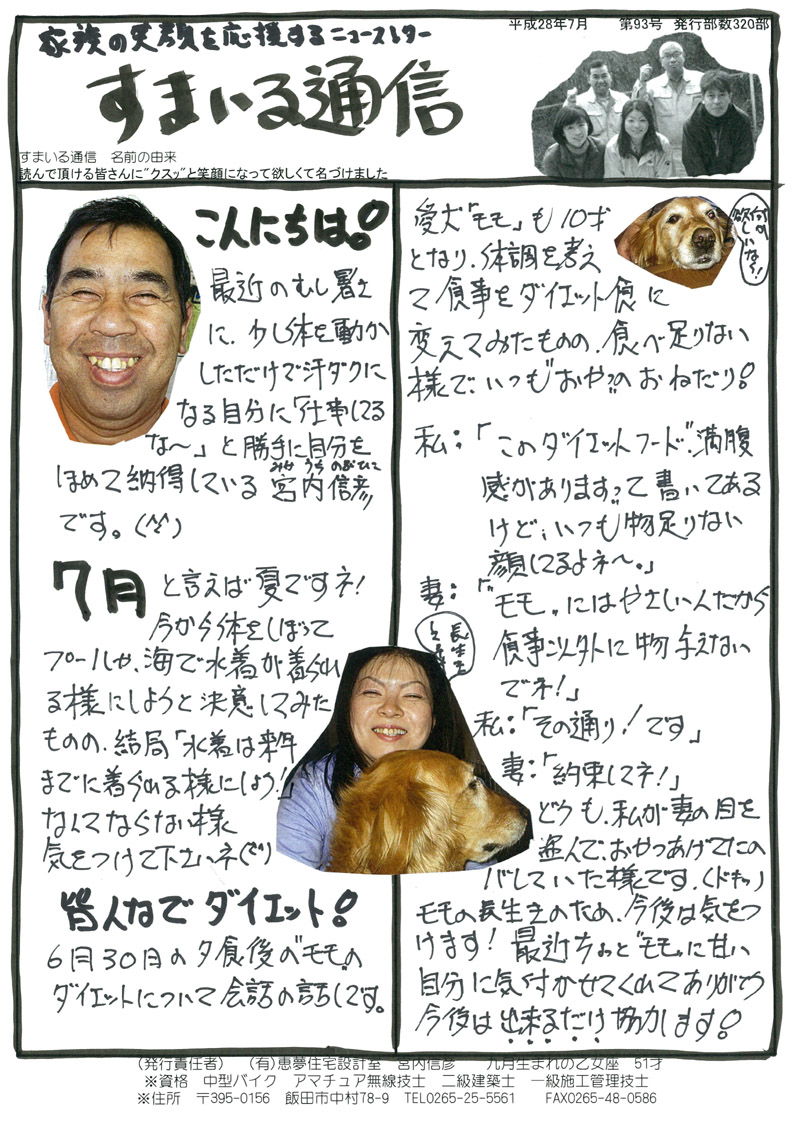 家族の笑顔を応援するニュースレター
平成28年7月 第93号 発行部数320部
すまいる通信
すまいる通信 名前の由来
読んで頂ける皆さんに"クスッ"と笑顔になって欲しくて名づけました
こんにちは!
最近のむし暑さ
に、少し体を動か
しただけで汗ダクに
なる自分に「仕事してる
な〜」と勝手に自分を
ほめて納得している 宮内信彦
みや うち のぶひこ
です。(^^)
7月 と言えば夏ですネ!
今から体をしぼって
プールや、海で水着が着られ
る様にしようと決意してみた
ものの、結局「水着は来年
までに着られる様にしよう!」
なんてならない様
気をつけて下さいネ(^^)
皆んなでダイエット!
6月30日の夕食後の"モモ"の
ダイエットについて会話の話しです。
愛犬「モモ」も10才
となり、体調を考え
て食事をダイエット食に
変えてみたものの、食べ足りない
様で、いつも"おやつ"のおねだり!
何か
欲しいなぁ!
私:「このダイエットフード"満腹
感があります"って書いてある
けど、いつも物足りない
顔してるよネ〜。」
妻:「"モモ"にはやさしい人だから
食事以外に物与えない
でネ!」
長生き
私:「その通り!です」
妻:「約束してネ!」
どうも、私が妻の目を
盗んで、おやつあげてたの
バレていた様です。(ドキッ)
モモの長生きのため、今後は気をつ
けます! 最近ちょっと"モモ"に甘い
自分に気付かせてくれてありがとう
今後は出来るだけ協力します!
(発行責任者) (有)恵夢住宅設計室 宮内信彦 九月生まれの乙女座 51才
※資格 中型バイク アマチュア無線技士 二級建築士 一級施工管理技士
※住所 〒395-0156 飯田市中村78-9 TEL0265-25-5561 FAX0265-48-0586